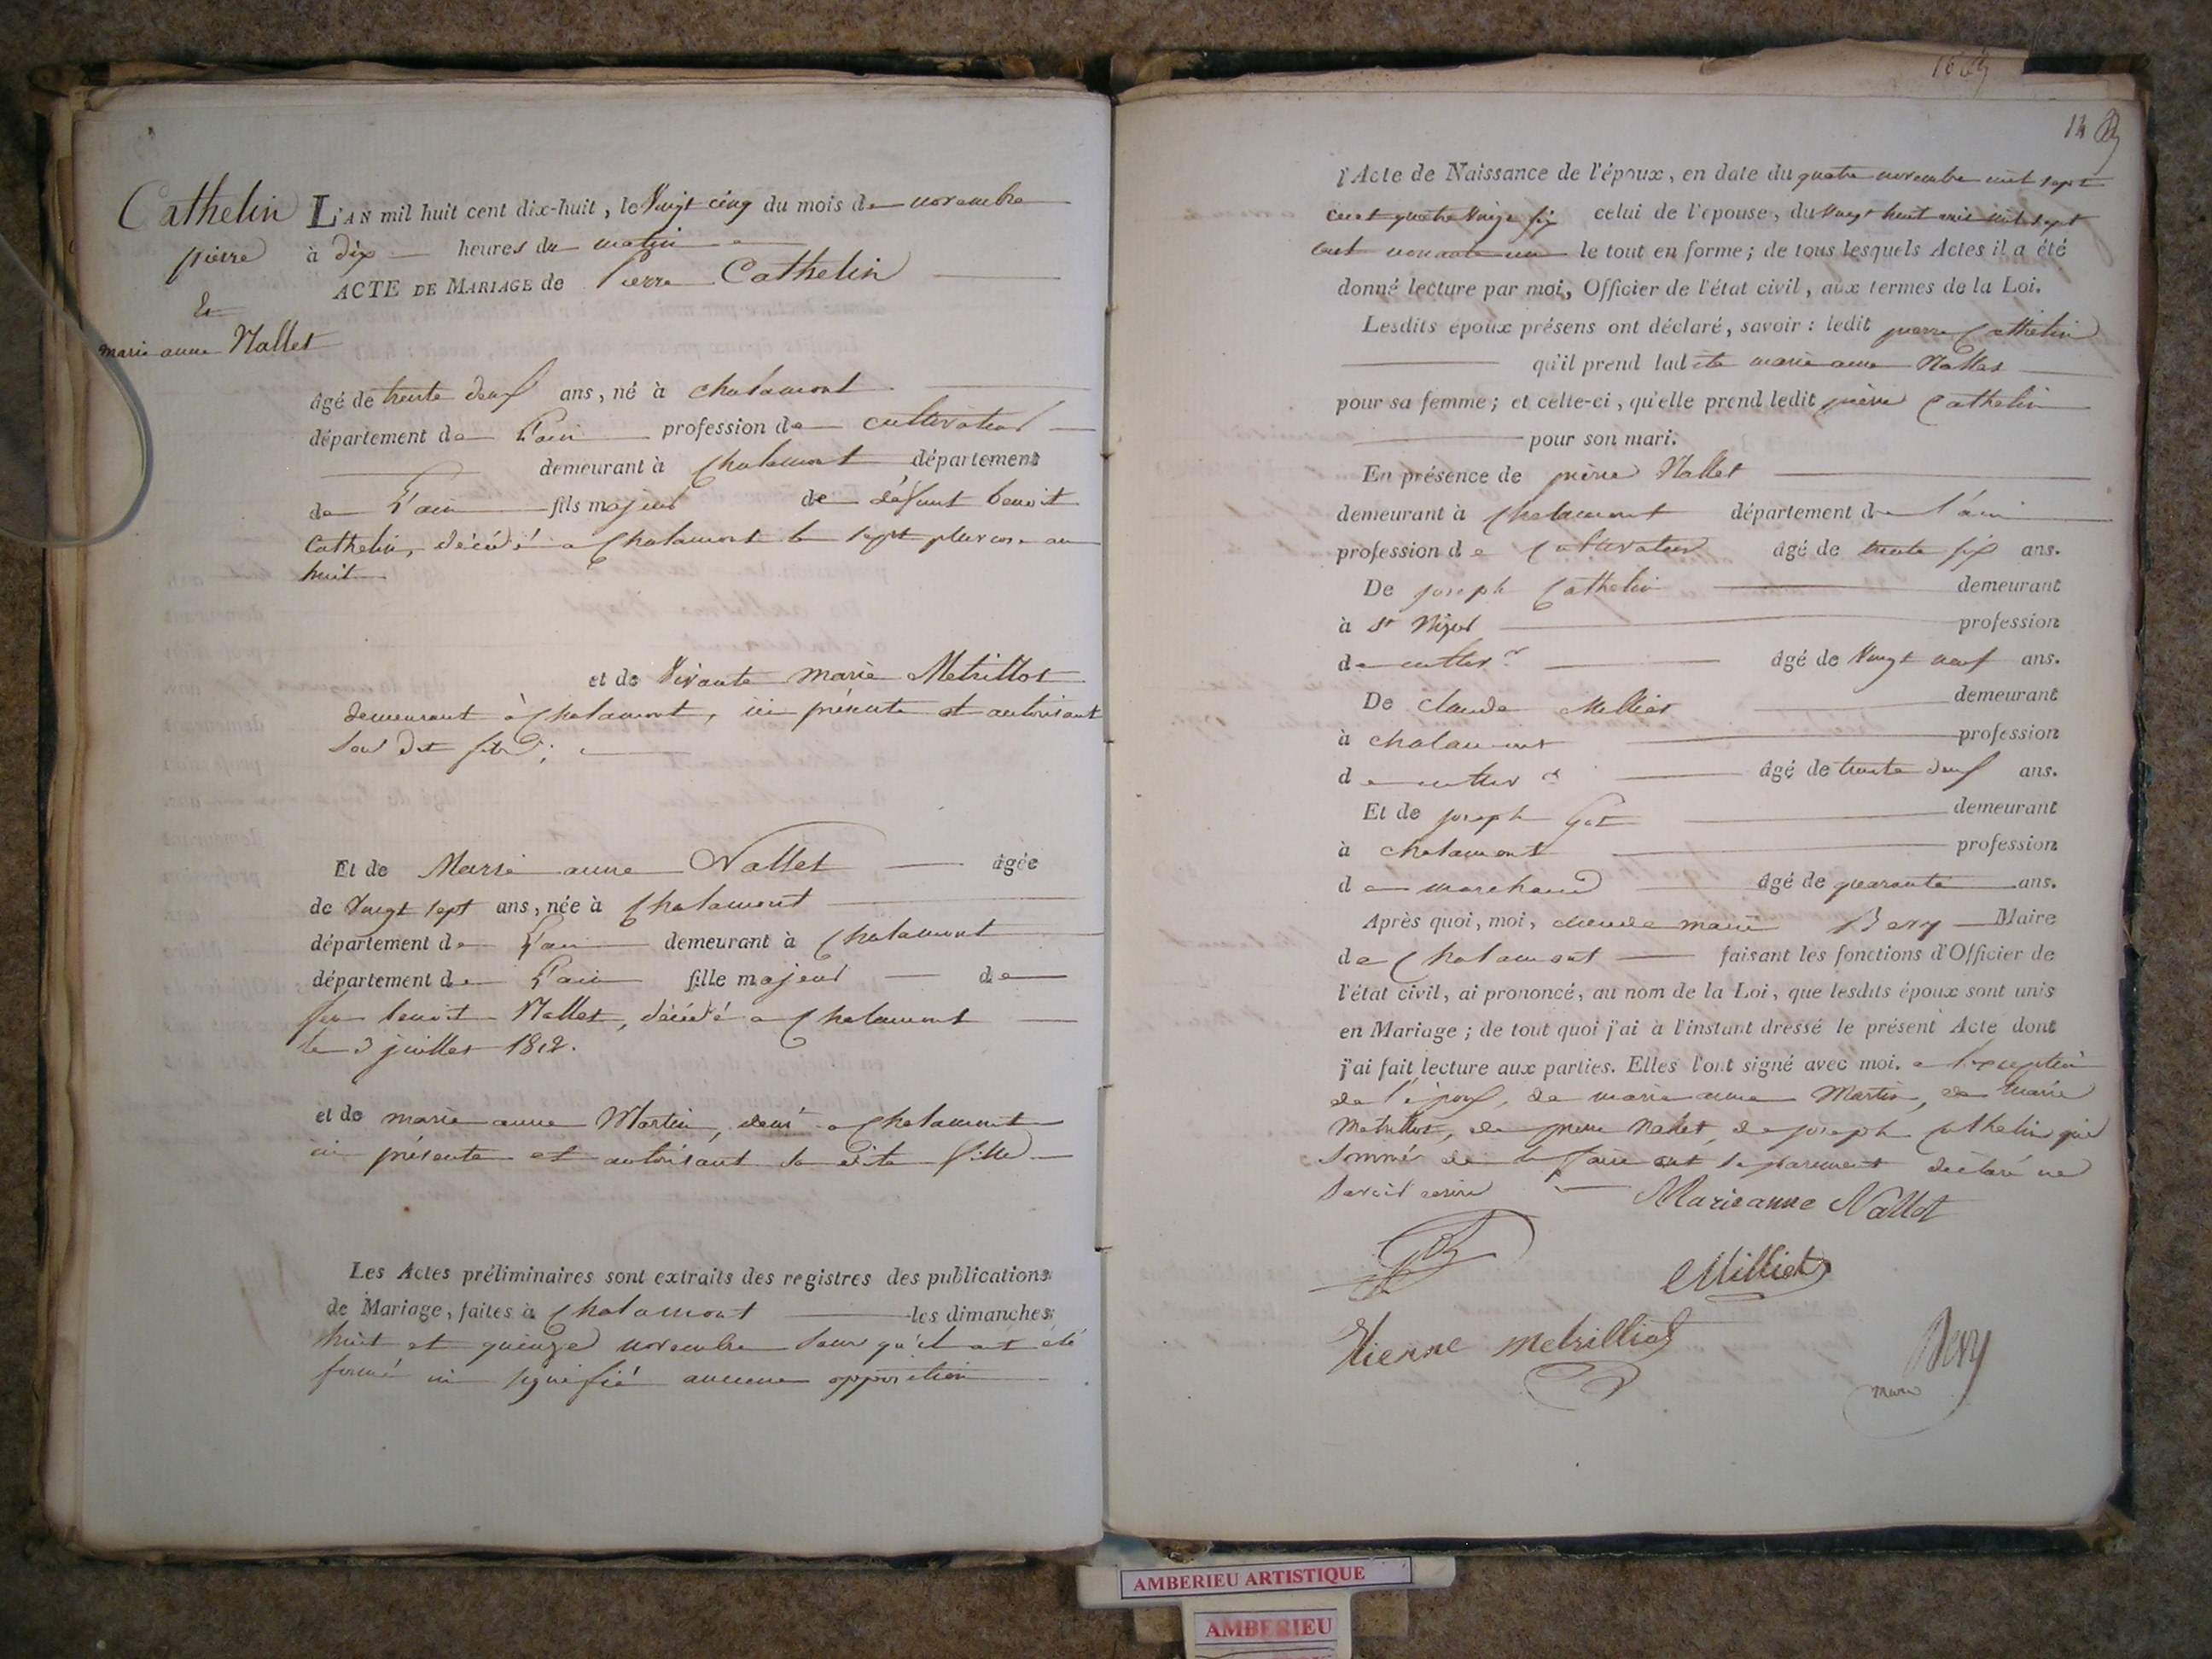 Cathelin
pierre
Et
marie anne Nallet
L'AN mil huit cent dix-huit, le Vingt cinq du mois de novembre
à dix heures du matin
ACTE DE MARIAGE de Pierre Cathelin
âgé de trente deux ans, né à chalamont
département de L'ain profession de cultivateur
demeurant à Chalamont département
de L'ain fils majeur de défunt benoit
Cathelin, décédé a Chalamont le sept pluviose an
huit
et de Vivante marie Metrillot
demeurant à Chalamont, ici présente et autorisant
son dit fils;
Et de Marie anne Nallet âgée
de Vingt sept ans, née à Chalamont
département de L'ain demeurant à Chalamont
département de L'ain fille majeur de
feu benoit Nallet, décédé a Chalamont
le 3 juillet 1812.
et de marie anne Martin, demt a Chalamont
ici présente et autorisant sa dite fille
Les Actes préliminaires sont extraits des registres des publications
de Mariage, faites à Chalamont les dimanches
huit et quinze novembre sans qu'il ait été
formé ni signifié aucune opposition
14
l'Acte de Naissance de l'époux, en date du quatre novembre mil sept
cent quatre Vingt six celui de l'épouse, du Vingt huit mil sept
cent nonante un le tout en forme; de tous lesquels Actes il a été
donné lecture par moi, Officier de l'état civil, aux termes de la Loi.
Lesdits époux présens ont déclaré, savoir: ledit pierre Cathelin
qu'il prend ladite marie anne Nallet
pour sa femme; et celle-ci, qu'elle prend ledit pierre Cathelin
pour son mari.
En présence de pierre Nallet
demeurant à Chalamont département de l'ain
profession de Cultivateur âgé de trente six ans.
De joseph Cathelin demeurant
à St Nizier profession
de cultivr âgé de Vingt neuf ans.
De claude Milliet demeurant
à chalamont profession
de cultivr âgé de trente deux ans.
Et de joseph demeurant
à chalamont profession
de marchand âgé de quarante ans.
Après quoi, moi, claude marie Bery Maire
de Chalamont faisant les fonctions d'Officier de
l'état civil, ai prononcé, au nom de la Loi, que lesdits époux sont unis
en Mariage; de tout quoi j'ai à l'instant dressé le présent Acte dont
j'ai fait lecture aux parties. Elles l'ont signé avec moi. a l'exception
de l'époux, de marie anne Martin, de marie
Metrillot, de pierre Nallet, de joseph Cathelin qui
sommés de le faire ont séparement déclaré ne
savoir ecrire
Marieanne Nallet
Milliet
Etienne metrilliot
Bery
maire
AMBERIEU ARTISTIQUE
AMBERIEU